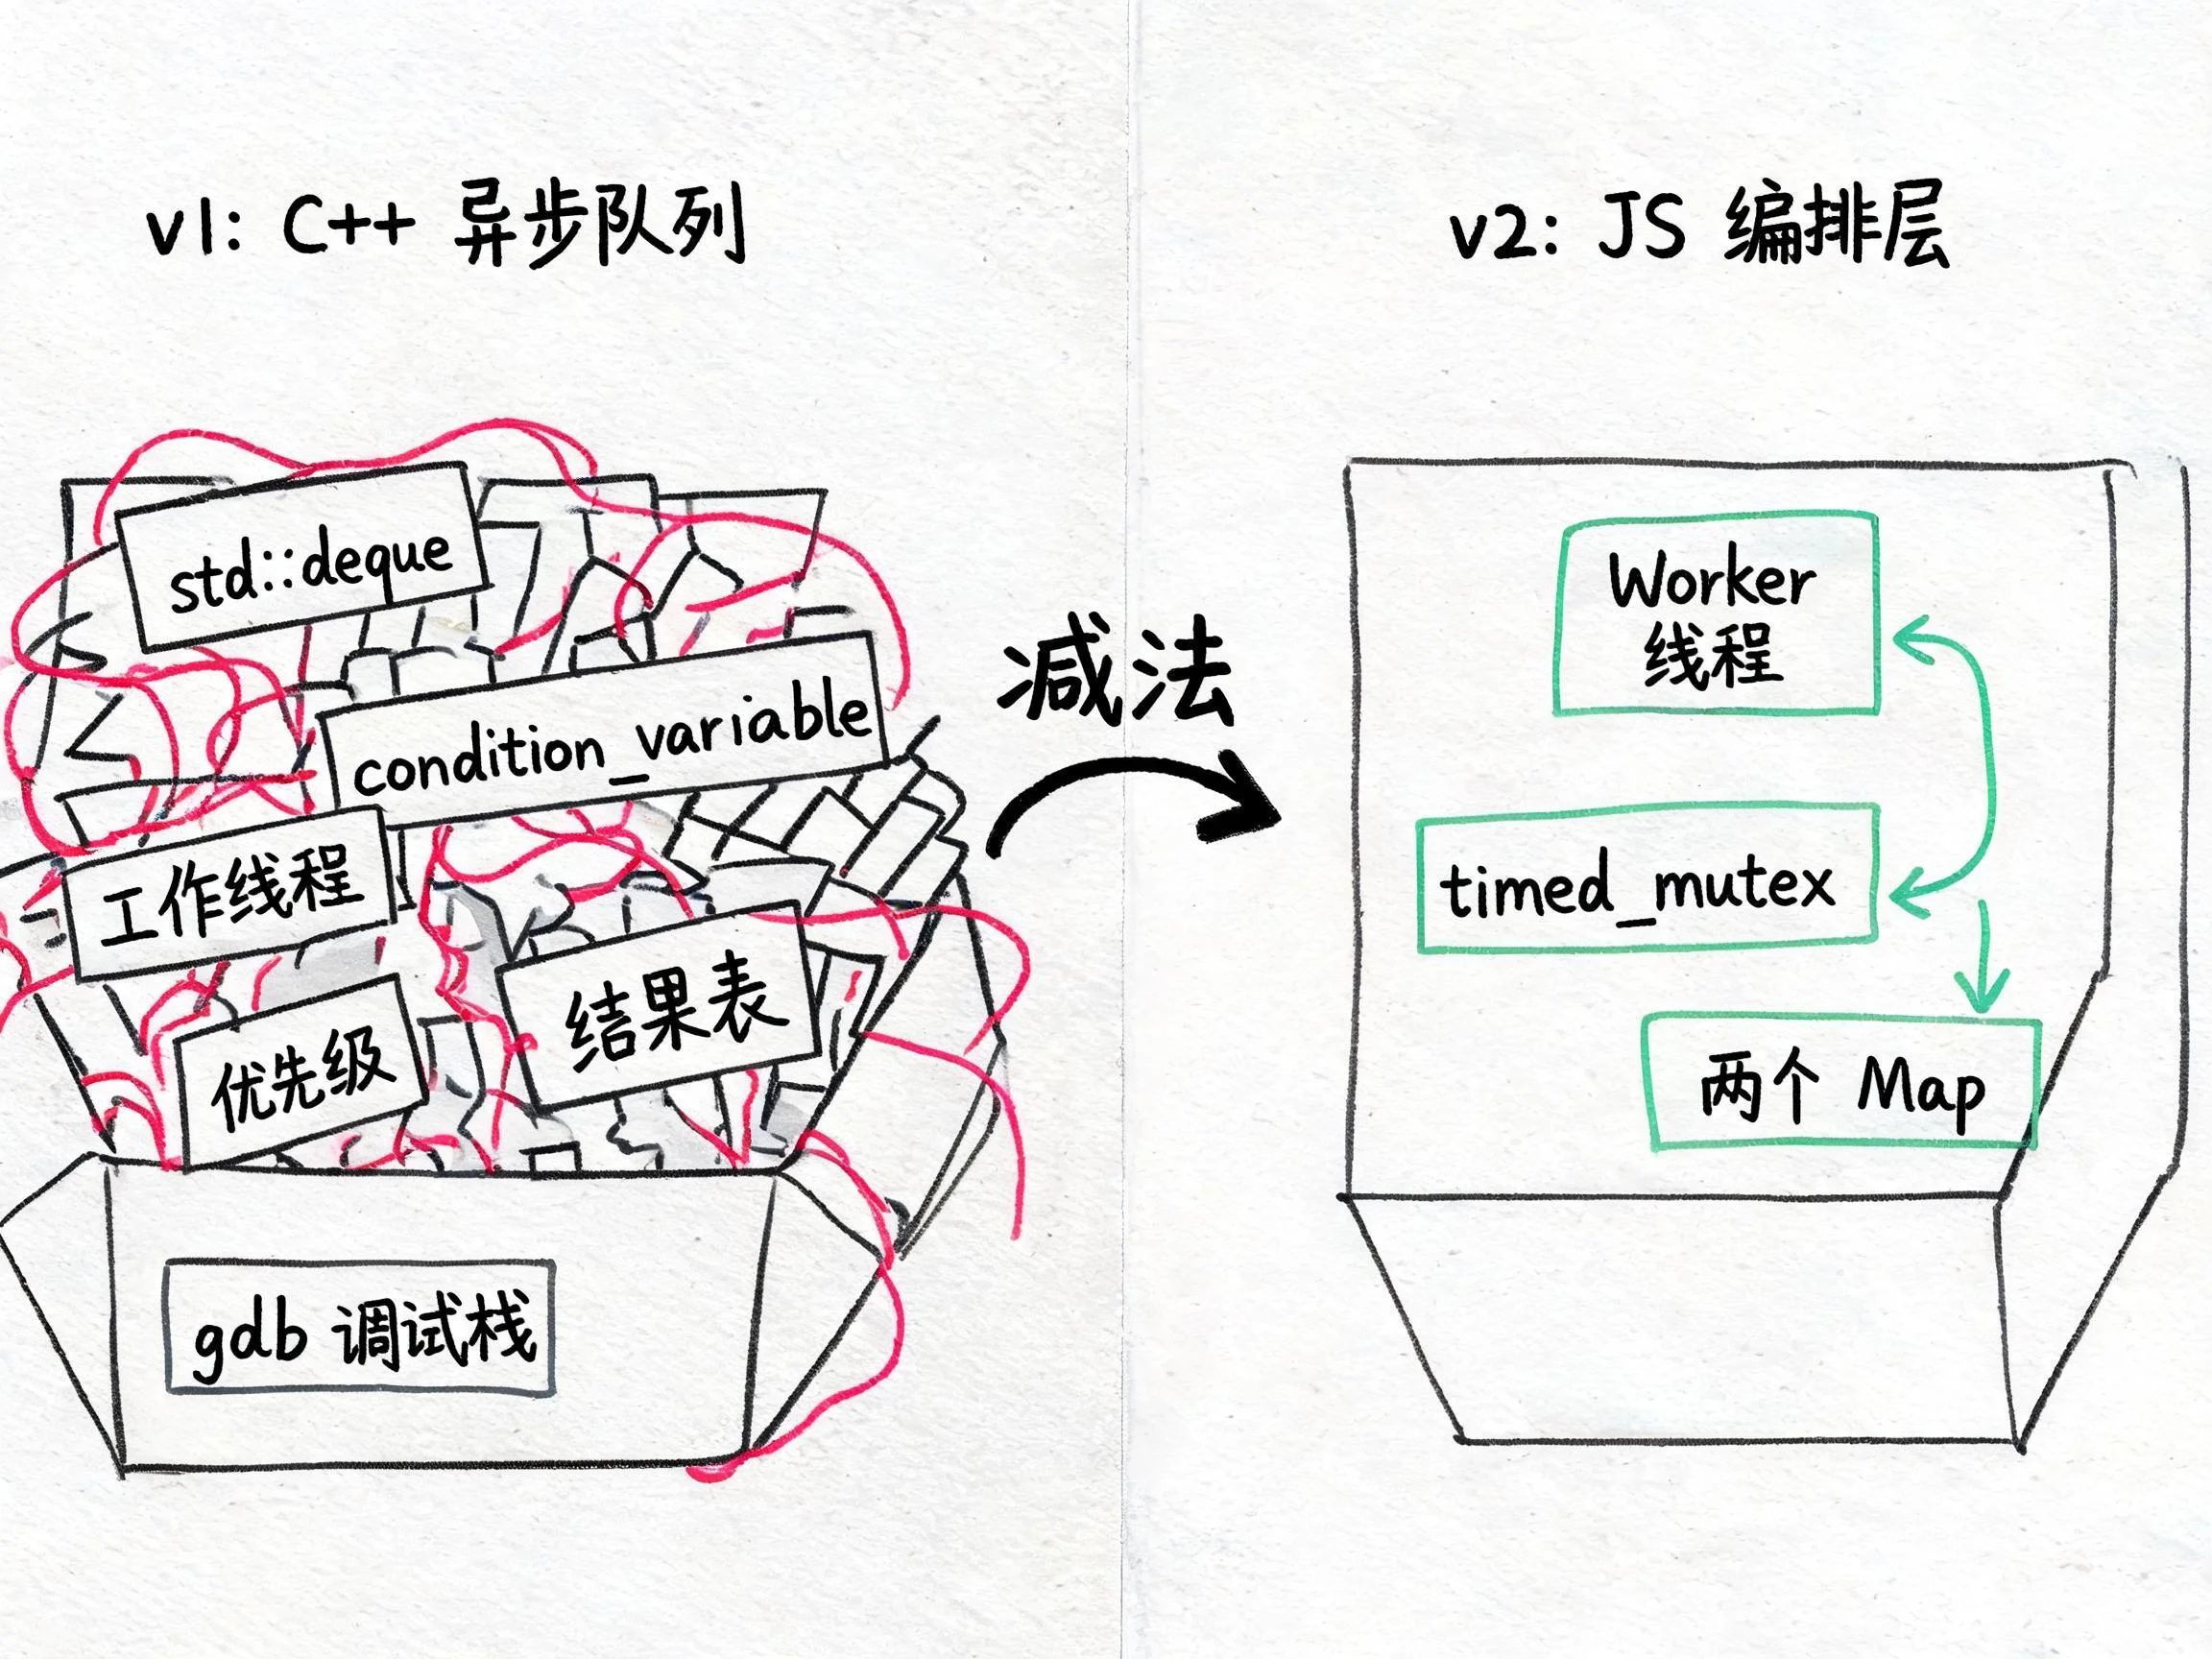 v1: C++ 异步队列
std::deque
condition_variable
工作线程
优先级
结果表
gdb 调试栈
减法
v2: JS 编排层
Worker
线程
timed_mutex
两个 Map